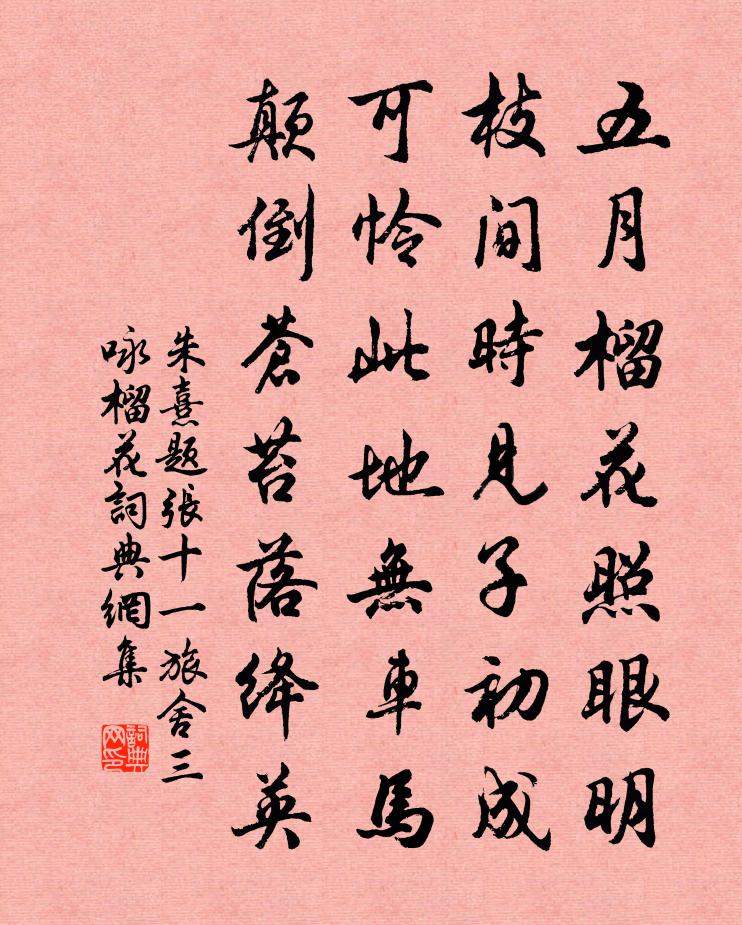 五月榴花照眼明
枝間時見子初成
可怜此地無車馬
顛倒蒼苔落絳英
朱熹题張十一旅舍三
咏榴花詞典網集
詞典网印